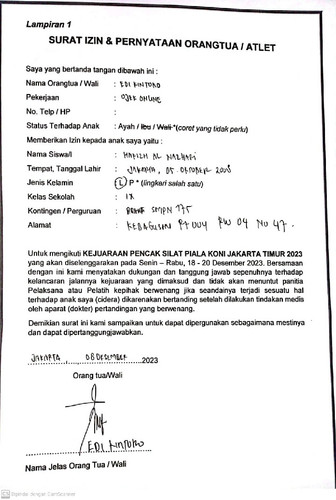 Lampiran 1
SURAT IZIN & PERNYATAAN ORANGTUA / ATLET
Saya yang bertanda tangan dibawah ini :
Nama Orangtua / Wali : EDI KINTOKO
Pekerjaan : OJEK ONLINE
No. Telp / HP :
Status Terhadap Anak : Ayah / Ibu / Wali *(coret yang tidak perlu)
Memberikan Izin kepada anak saya yaitu :
Nama Siswa/i : HAFIZH AL
Tempat, Tanggal Lahir : JAKARTA, 05 OKTOBER 2008
Jenis Kelamin : L P * (lingkari salah satu)
Kelas Sekolah : IX
Kontingen / Perguruan : SMPN 175
Alamat : KEBAGUSAN RT 004 RW 04 NO 47.
Untuk mengikuti KEJUARAAN PENCAK SILAT PIALA KONI JAKARTA TIMUR 2023
yang akan diselenggarakan pada Senin – Rabu, 18 - 20 Desember 2023. Bersamaan
dengan ini kami menyatakan dukungan dan tanggung jawab sepenuhnya terhadap
kelancaran jalannya kejuaraan yang dimaksud dan tidak akan menuntut panitia
Pelaksana atau Pelatih kepihak berwenang jika seandainya terjadi sesuatu hal
terhadap anak saya (cidera) dikarenakan bertanding setelah dilakukan tindakan medis
oleh aparat (dokter) pertandingan yang berwenang.
Demikian surat ini kami sampaikan untuk dapat dipergunakan sebagaimana mestinya
dan dapat dipertanggungjawabkan.
JAKARTA, 08 DESEMBER 2023
Orang tua/Wali
EDI KINTOKO
Nama Jelas Orang Tua / Wali